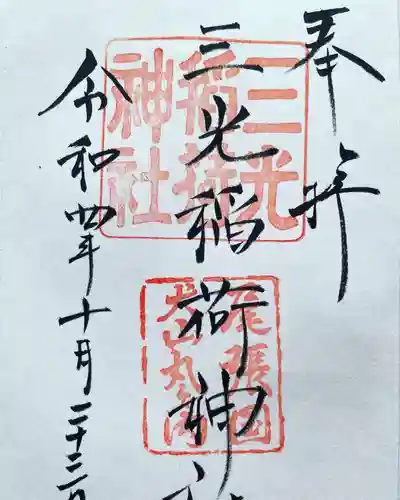 奉拝
三光稲荷神社
三光
稲荷
神社
尾張国
犬山丸の内
令和四年十月二十三日